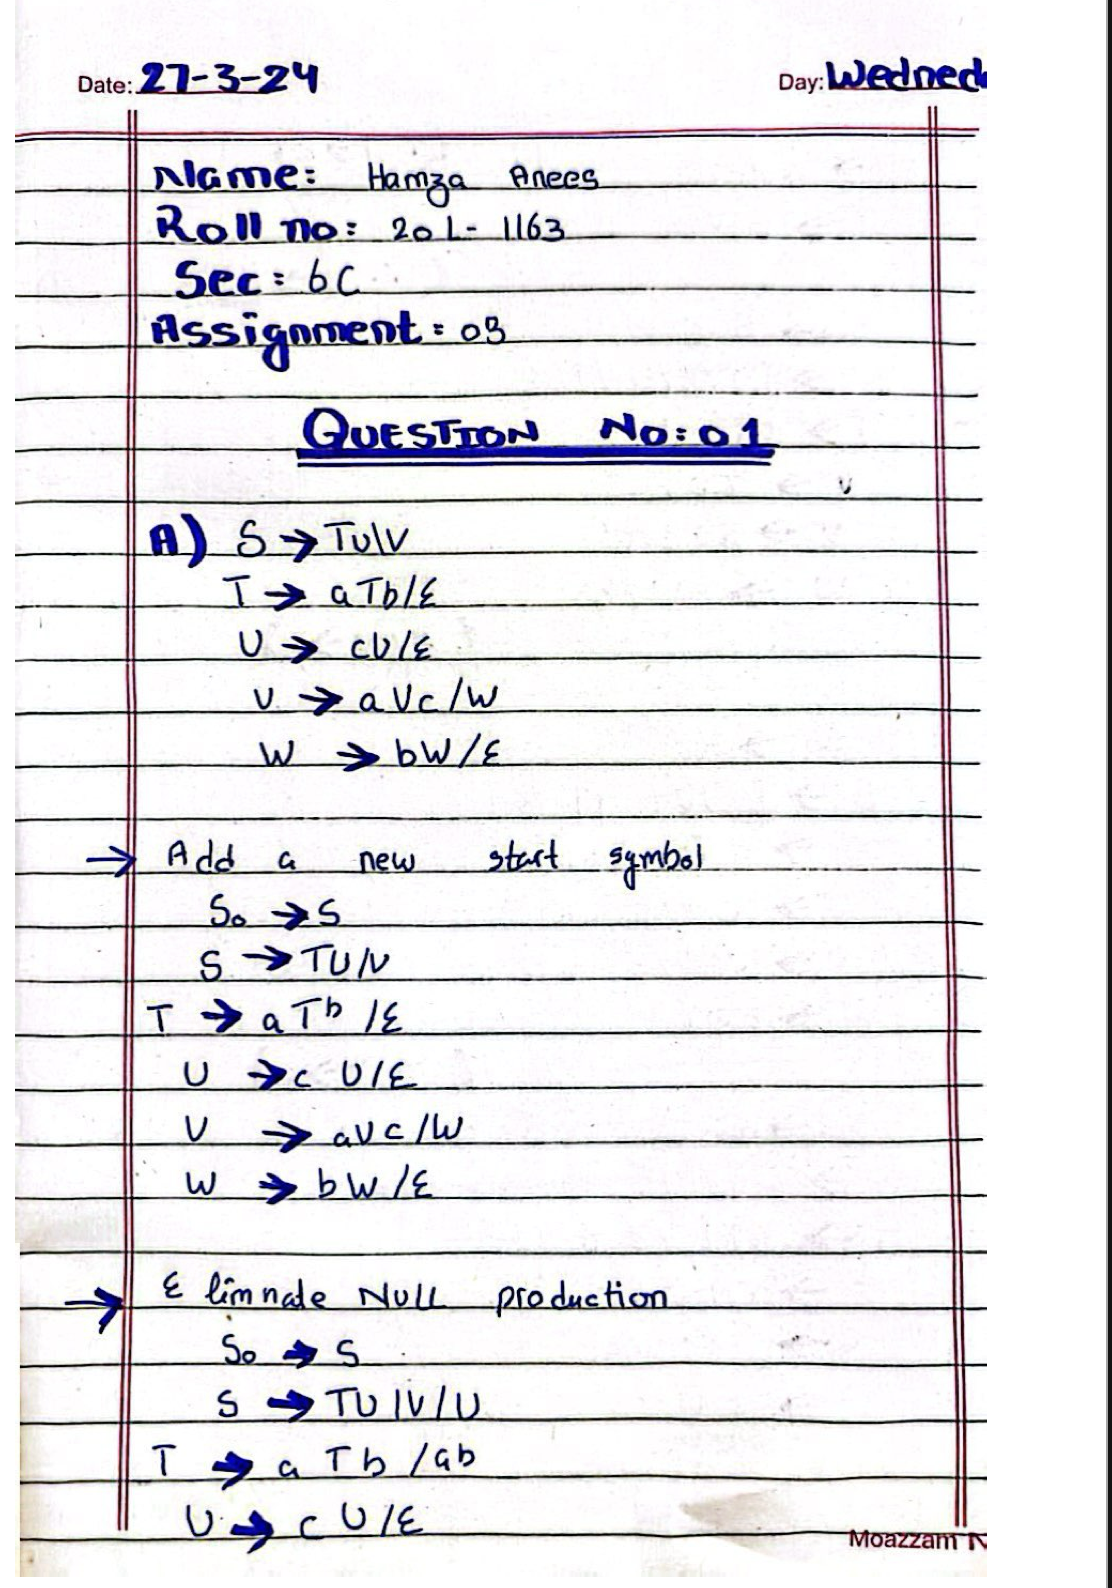 Date: 27-3-24 Day: Wedned
Name: Hamza Anees
Roll no: 20L-1163
Sec: 6C
Assignment: 03
QUESTION No:01
A) S → TU|V
T → aTb/ε
U → cU/ε
V → aVc/W
W → bW/ε
→ Add a new start symbol
S₀ → S
S → TU|V
T → aTb/ε
U → cU/ε
V → aVc/W
W → bW/ε
→ Elimnate NULL production
S₀ → S
S → TU|V/U
T → aTb/ab
U → cU/ε
Moazzam